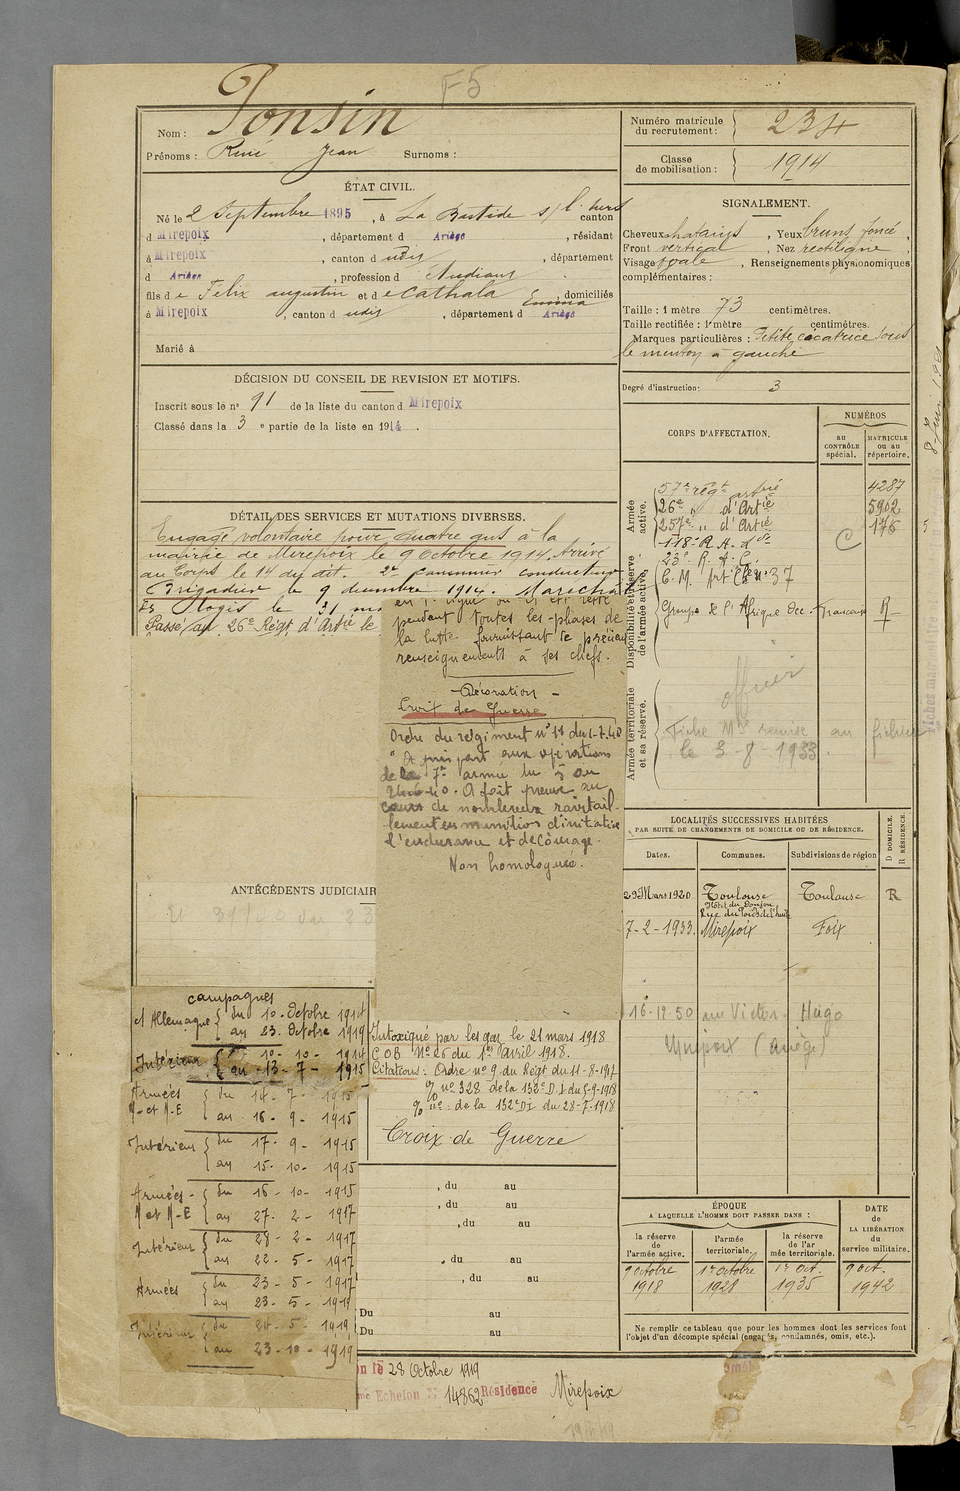 F5
Nom : Ponsin
Prénoms : René Jean Surnoms :
Numéro matricule du recrutement : 234
Classe de mobilisation : 1914
ÉTAT CIVIL.
Né le 2 Septembre 1895, à La Bastide s/ l'hers canton
d Mirepoix, département d Ariège, résidant
à Mirepoix, canton d udit, département
d Ariège, profession d Etudiant
fils d e Felix augustin et d e Cathala Emma domiciliés
à Mirepoix, canton d udit, département d Ariège
Marié à
SIGNALEMENT.
Cheveux chatains, Yeux bruns foncé,
Front vertical, Nez rectiligne,
Visage ovale, Renseignements physionomiques
complémentaires :
Taille : 1 mètre 73 centimètres.
Taille rectifiée : 1 mètre centimètres.
Marques particulières : Petite cicatrice sous
le menton à gauche
Degré d'instruction : 3
DÉCISION DU CONSEIL DE REVISION ET MOTIFS.
Inscrit sous le n° 91 de la liste du canton d Mirepoix
Classé dans la 3e partie de la liste en 1914.
DÉTAIL DES SERVICES ET MUTATIONS DIVERSES.
Engagé volontaire pour quatre ans à la
mairie de Mirepoix le 9 Octobre 1914. Arrivé
au Corps le 14 du dit. 2e canonnier conducteur
Brigadier le 9 décembre 1914. Maréchal
des logis le 31 m
Passé au 26e Régt d'Artie le
en 1e ligne où il est resté
pendant toutes les phases de
la lutte fournissant de précieux
renseignements à ses chefs.
- Décoration -
Croix de Guerre
Ordre du régiment n° 18 du 1-7-40
"A pris part aux opérations
de la 7e armée du 5 au
A fait preuve au
cours de nombreux ravitail-
lements en munitions d'initiative
d'endurance et de courage.
Non homologuée.
ANTÉCÉDENTS JUDICIAIR
CORPS D'AFFECTATION.
NUMÉROS
au CONTRÔLE spécial.
MATRICULE ou au répertoire.
Armée active.
57e régt artie 4287
26e " d'Artie 5902
257e " d'Artie 176
118e R. A. de
C
Disponibilité et réserve de l'armée active.
23e R. A. C.
C. M. Art Cle n° 37
Groupe de l'Afrique Occ. Francaise R
Armée territoriale et sa réserve.
officier
Fiche Mle remise au fichier
le 3-8-1933.
Fiches matricul
LOCALITÉS SUCCESSIVES HABITÉES
PAR SUITE DE CHANGEMENTS DE DOMICILE OU DE RÉSIDENCE.
Dates. Communes. Subdivisions de région
D DOMICILE. R RÉSIDENCE.
29 Mars 1920 Toulouse Toulouse R
Hôtel du Donjon
Rue du Poids de l'huile
7-2-1933. Mirepoix Foix
16-12-50 rue Victor Hugo
Mirepoix (Ariège)
campagnes
ct Allemagne { du 10 Octobre 1914
au 23 Octobre 1919
Intérieur { 10 - 10 - 1914
au 13 - 7 - 1915
Armées { du 14 - 7 - 1915
M-et M-E au 16 - 9 - 1915
Intérieur { du 17 - 9 - 1915
au 15 - 10 - 1915
Armées - { du 16 - 10 - 1915
M et M-E au 27 - 2 - 1917
Intérieur { du 28 - 2 - 1917
au 22 - 5 - 1917
Armées { du 23 - 5 - 1917
au 23 - 5 - 1919
Intérieur { du 24 - 5 - 1919
au 23 - 10 - 1919
Intoxiqué par les gaz le 21 mars 1918
C O B N° 26 du 1er Avril 1918.
Citations : Ordre n° 9 du Régt du 11-8-1917
% n° 328 de la 132e D.I du 5-9-1918
% n° : de la 132e DI du 28-7-1918
Croix de Guerre
, du au
, du au
, du au
, du au
, du au
Du au
Du au
ÉPOQUE
A LAQUELLE L'HOMME DOIT PASSER DANS :
la réserve de l'armée active.
l'armée territoriale.
la réserve de l'armée territoriale.
DATE de LA LIBÉRATION du service militaire.
9 octobre 1918
1er octobre 1928
1er oct. 1935
9 oct. 1942
Ne remplir ce tableau que pour les hommes dont les services font
l'objet d'un décompte spécial (engagés, condamnés, omis, etc.).
on le 28 Octobre 1919
me Echelon N° 14862 Résidence Mirepoix